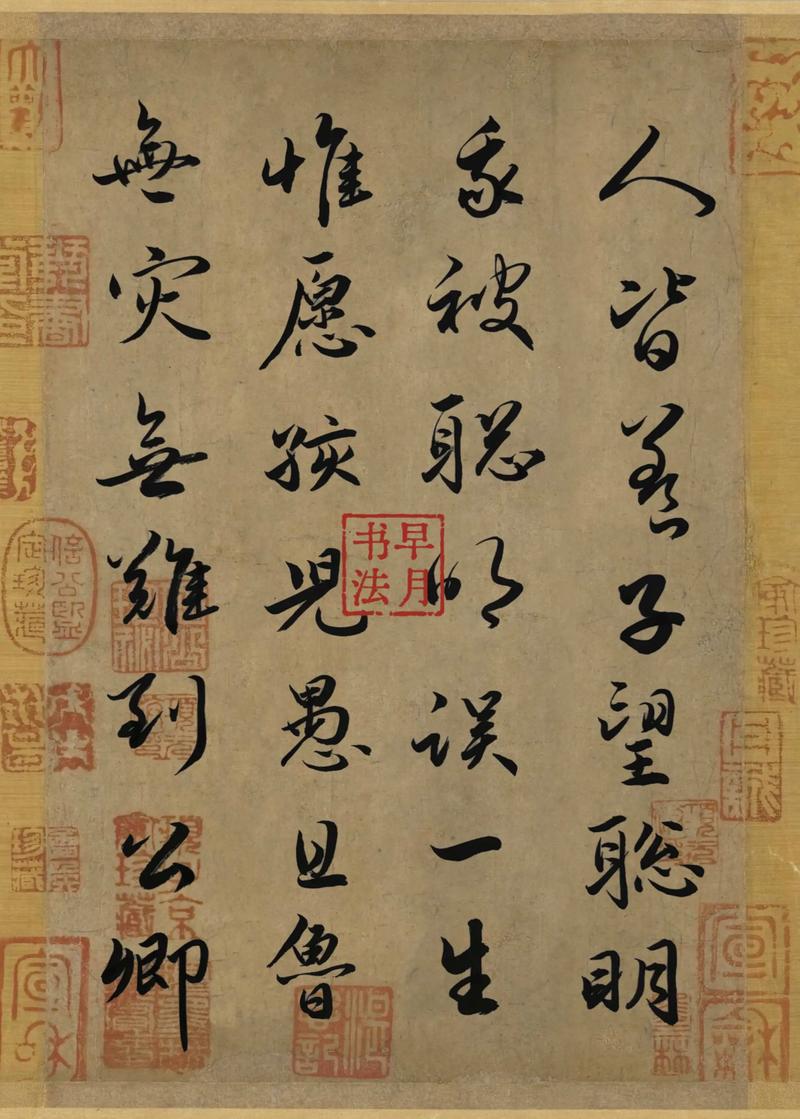 人皆養子望聰明
我被聰明誤一生
惟愿孩兒愚且魯
無灾無難到公卿
早月
书法